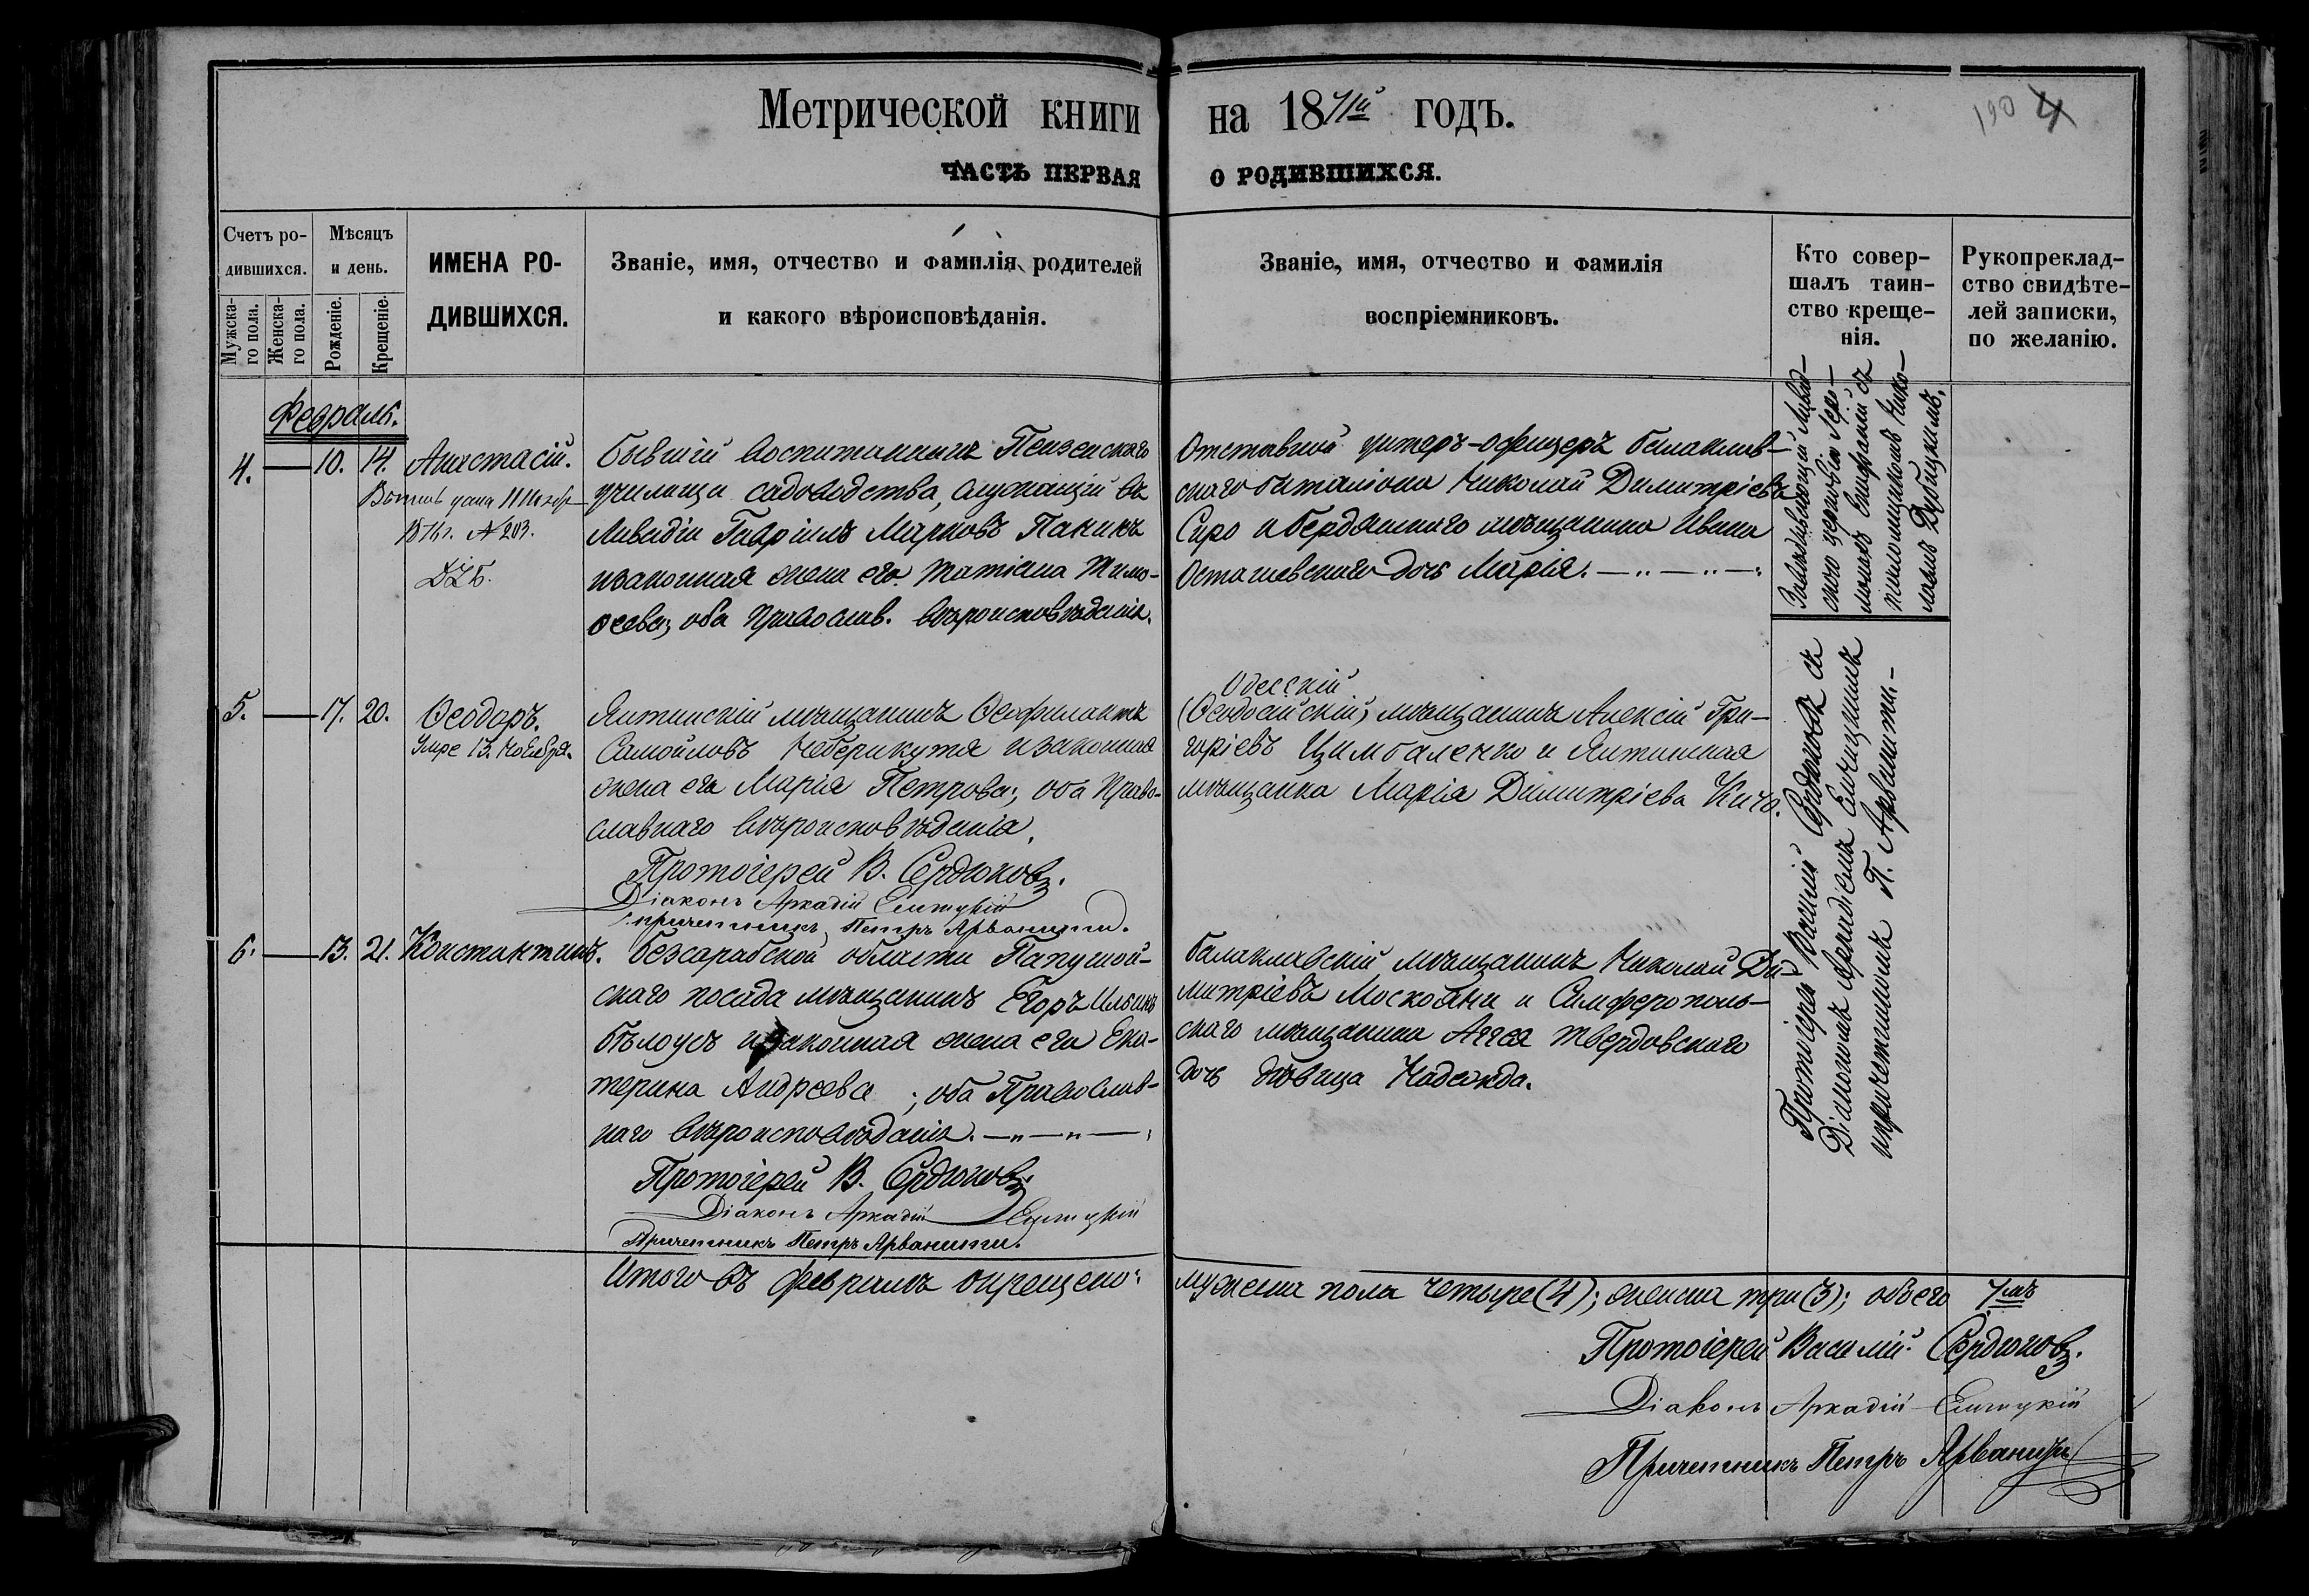 Метрической книги на 1871й годъ.
190 4
ЧАСТЬ ПЕРВАЯ О РОДИВШИХСЯ.
Счетъ ро-
дившихся.
Мужска-
го пола.
Женска-
го пола.
Мѣсяцъ
и день.
Рожденіе.
Крещеніе.
ИМЕНА РО-
ДИВШИХСЯ.
Званіе, имя, отчество и фамилія родителей
и какого вѣроисповѣданія.
Званіе, имя, отчество и фамилія
воспріемниковъ.
Кто совер-
шалъ таин-
ство креще-
нія.
Рукопреклад-
ство свидѣте-
лей записки,
по желанію.
Февраль.
4. — 10. 14. Анастасій.
№ 203.
Бывшій воспитанникъ Пензенскаго
училища садоводства, служащій въ
Ливадіи Гавріилъ Марковъ Паникъ
и законная жена его Татіана Тимо-
ѳеева; оба православ. вѣроисповѣданія.
Отставной унтеръ-офицеръ балаклав-
скаго баталіона Николай Димитріевъ
Сиро и бердянскаго мѣщанина Ивана
Осташевскаго дочь Марія.
Ливад-
ской церкви Іеро-
монахъ Епифаній съ
псаломщикомъ Нико-
лаемъ Дубицкимъ.
5. — 17. 20. Ѳеодоръ.
Умре 13. Ноября.
Ялтинскій мѣщанинъ Ѳеофилактъ
Самойловъ Чеберикутя и законная
жена его Марія Петрова; оба Право-
славнаго вѣроисповѣданія.
Протоіерей В. Сердюковъ.
Діаконъ Аркадій
причетникъ Петръ Арванити.
Одесскій
(Ѳеодосійскій) мѣщанинъ Алексій Гри-
горіевъ Цимбаленко и Ялтинская
мѣщанка Марія Димитріева Кичо.
Протоіерей Василій Сердюковъ съ
Діакономъ Аркадіемъ
и причетникомъ П. Арванити.
6. — 13. 21. Константинъ.
Бессарабской области Папушой-
скаго посада мѣщанинъ Егоръ Ильинъ
Бѣлоусъ и законная жена его Ека-
терина Андреева; оба Православ-
наго вѣроисповѣданія.
Протоіерей В. Сердюковъ.
Діаконъ Аркадій
Причетникъ Петръ Арванити.
Балаклавскій мѣщанинъ Николай Ди-
митріевъ Москояни и Симферополь-
скаго мѣщанина Аггея Твердовскаго
дочь дѣвица Надежда.
Итого въ февралѣ окрещено: мужеска пола четыре (4); женска три (3); обоего 7мь
Протоіерей Василій Сердюковъ.
Діаконъ Аркадій
Причетникъ Петръ Арванити